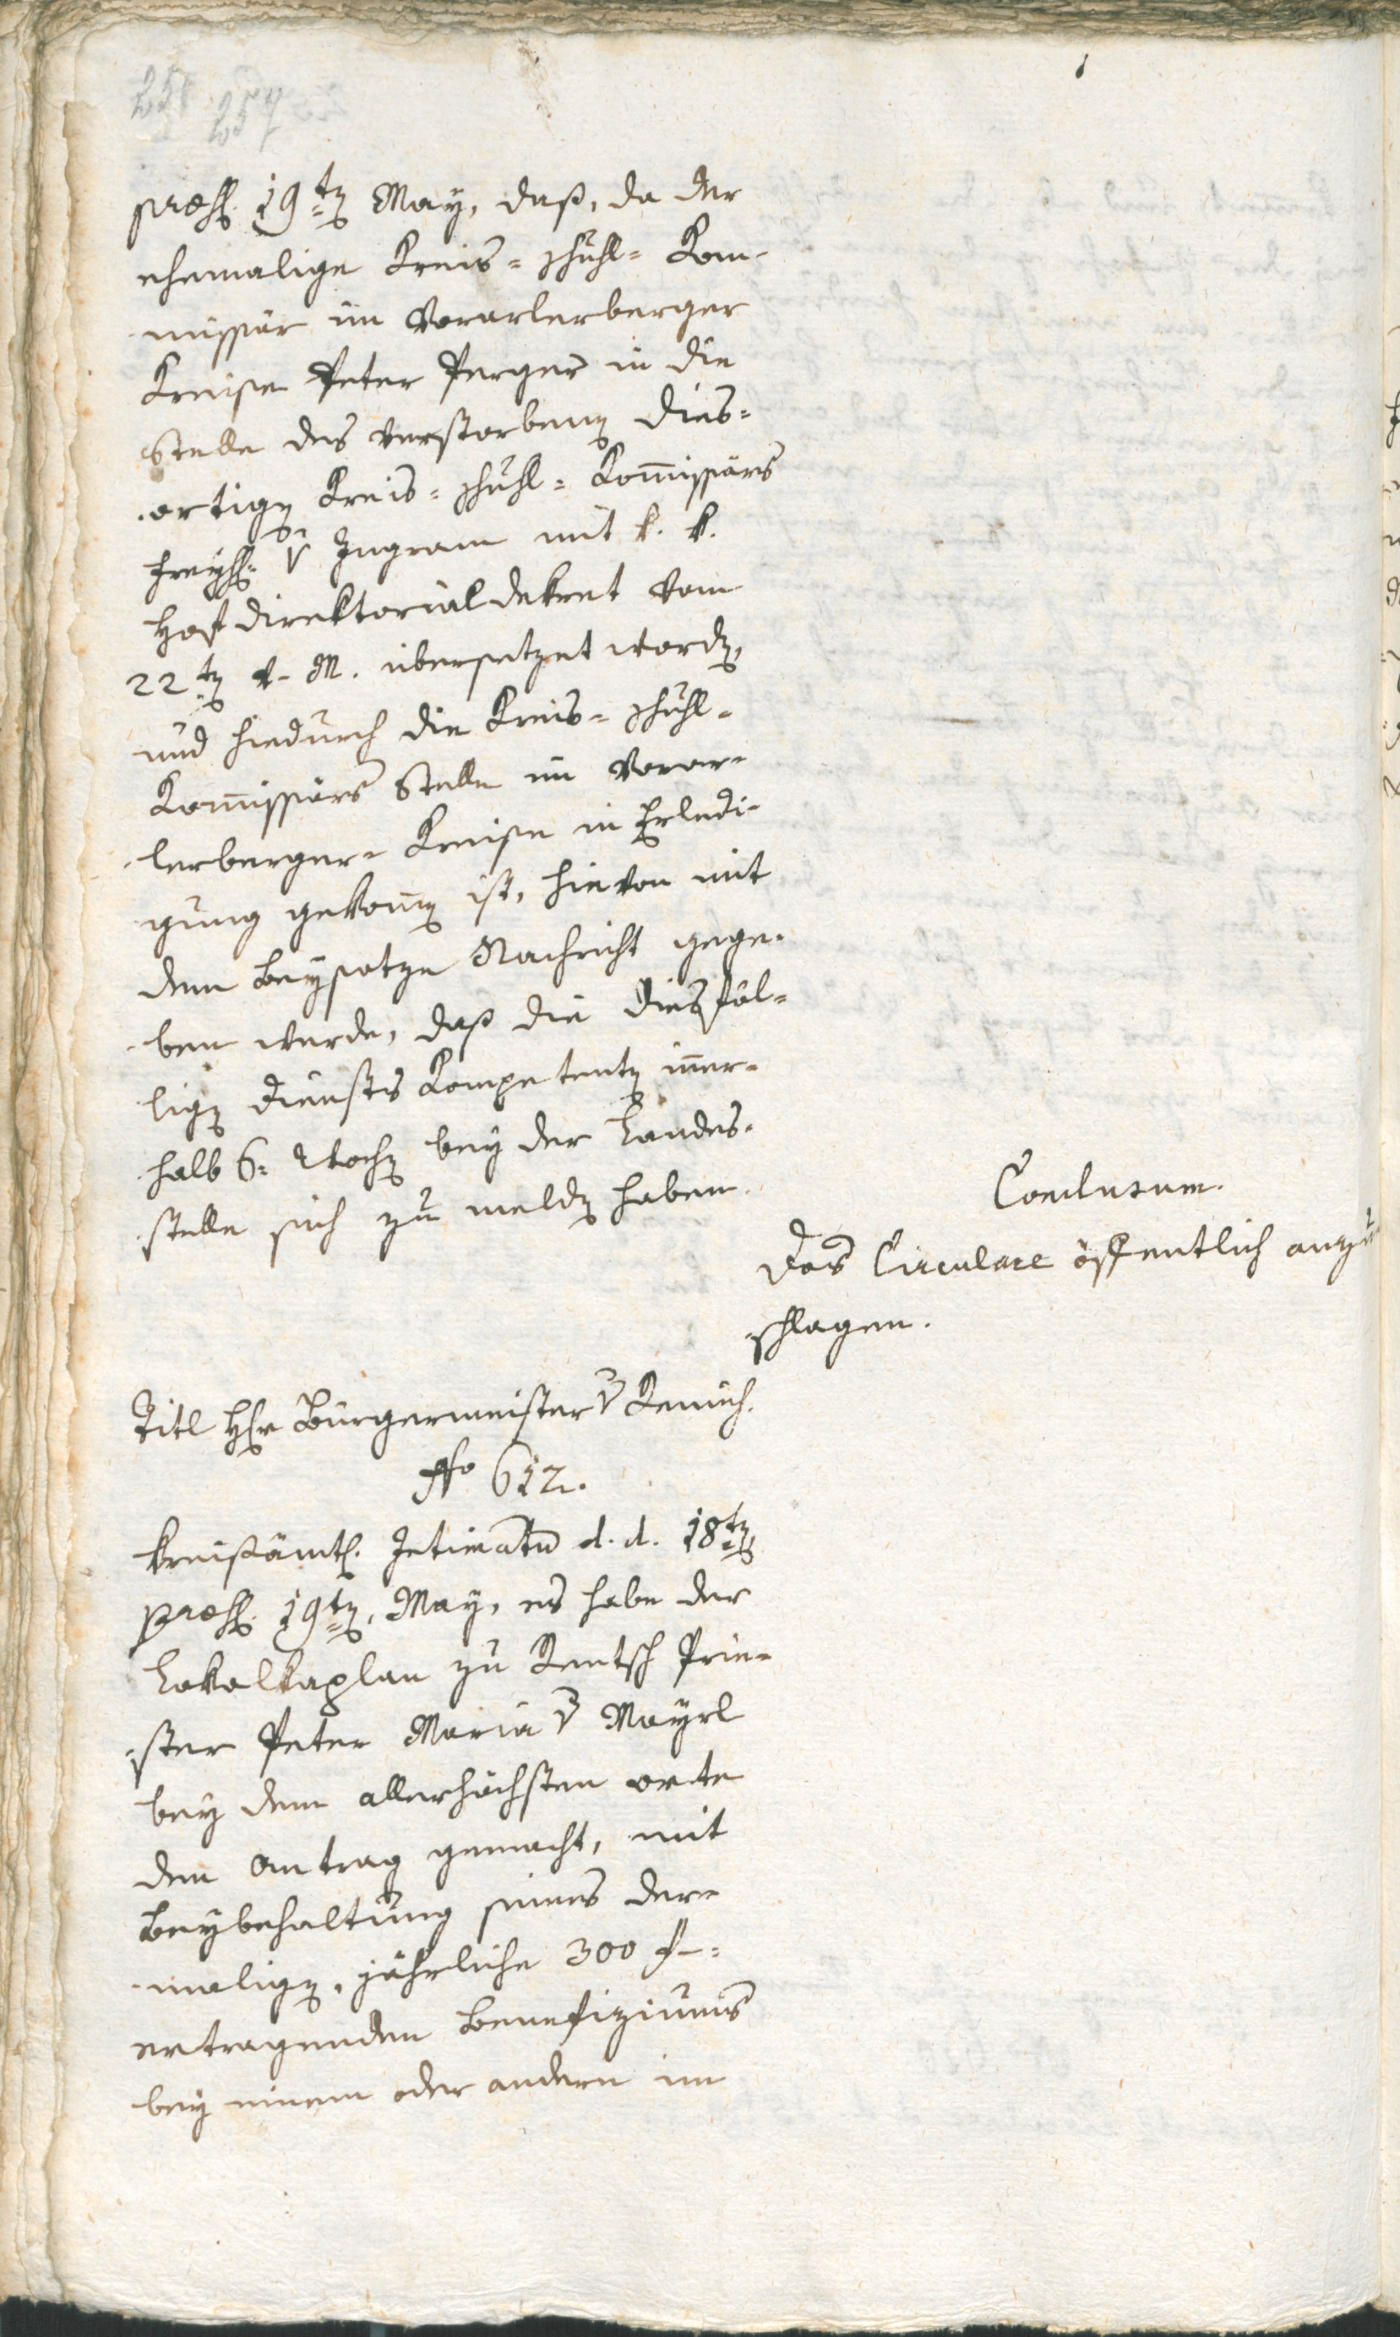 257
præs. 19ten May, daß, da der
ehemalige Kreis=Schuhl=Kom-
missär im Vorarlerberger
Kreise Peter Perger in die
Stelle des verstorbenen dies=
ortigen Kreis=Schuhl=Kom̄issärs
Freyh. v Ingram mit k. k.
Hof direktorialdekret vom
22ten v. M. übersetzet worden,
und hiedurch die Kreis=Schuhl-
Kom̄issärs Stelle im Vorar-
lerberger= Kreise in Erledi-
gung gekom̄en ist, hievon mit
dem Beysatze Nachricht gege-
ben werde, daß die diesfäl=
ligen Dienstes Kompetenten in̄er-
halb 6: Wochen bey der Landes-
stelle sich zu melden haben.
Conclusum.
Das Circulare öffentlich anzu
schlagen.
Titl Hr Bürgermeister v Remich.
No 612.
Kreisämtl. Intimatum d. d. 18ten
præs. 19ten May, es habe der
Lokalkaplan zu Rentsch Prie-
ster Peter Maria v Mayrl
bey dem allerhöchsten Orte
den Antrag gemacht, mit
Beybehaltung seines der-
maligen, jährliche 300 f:
ertragenden Benefiziums
bey einem oder andern im